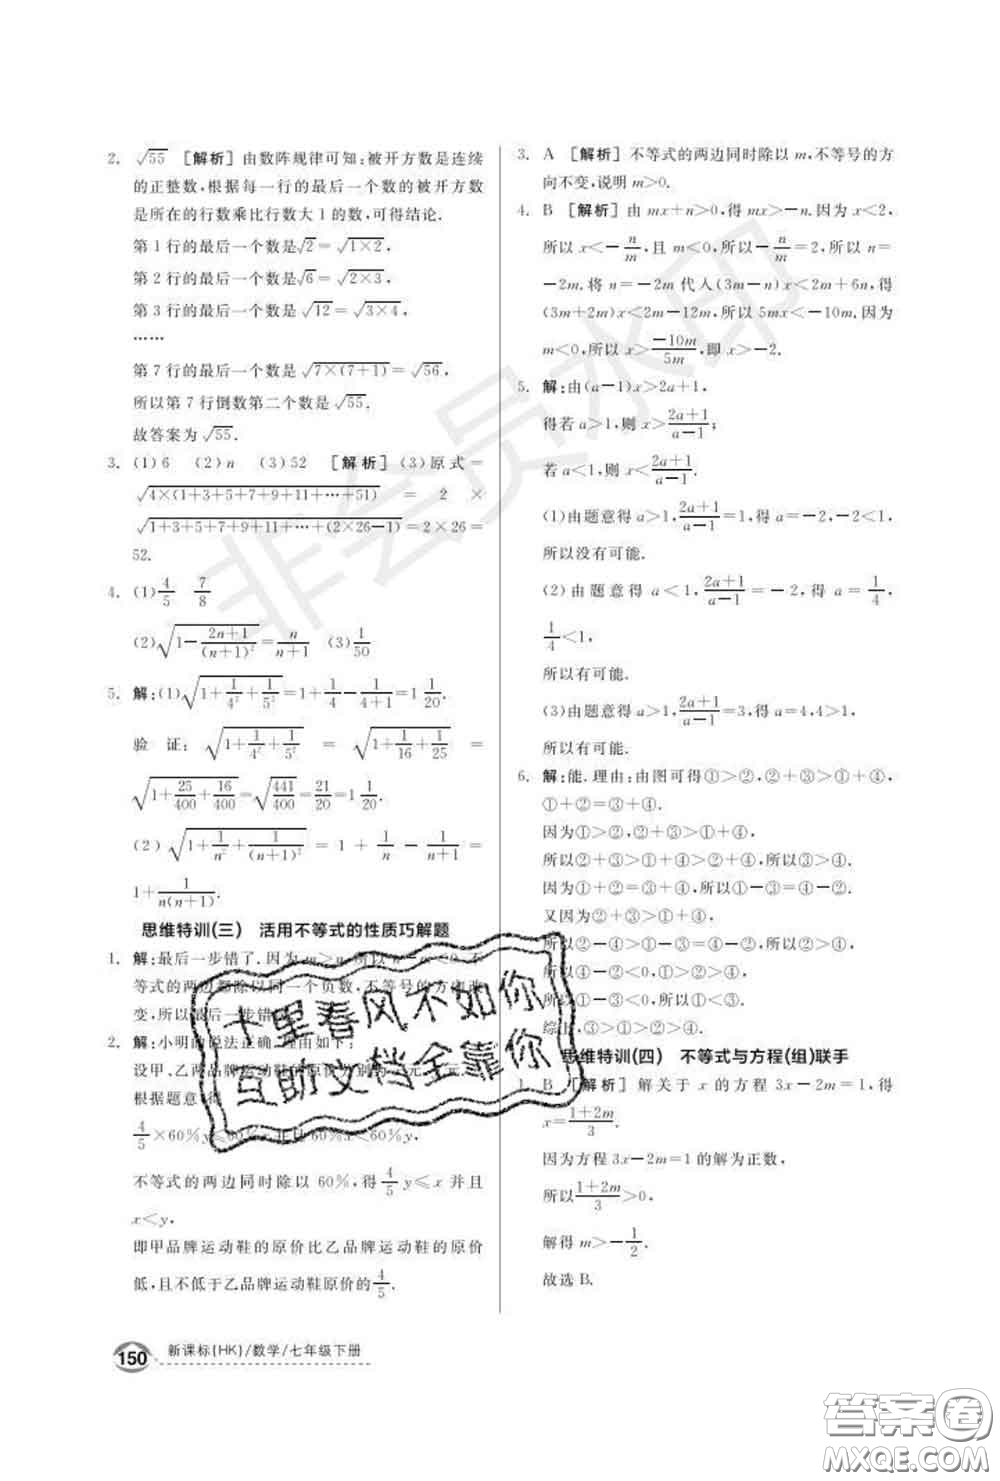 2. √55 [解析]由数阵规律可知:被开方数是连续
的正整数,根据每一行的最后一个数的被开方数
是所在的行数乘比行数大1的数,可得结论.
第1行的最后一个数是√2=√(1×2),
第2行的最后一个数是√6=√(2×3),
第3行的最后一个数是√12=√(3×4),
……
第7行的最后一个数是√(7×(7+1))=√56,
所以第7行倒数第二个数是√55.
故答案为√55.
3. (1)6 (2)n (3)52 [解析](3)原式=
√(4×(1+3+5+7+9+11+…+51)) = 2 ×
√(1+3+5+7+9+11+…+(2×26-1))=2×26=
52.
4. (1)4/5 7/8
(2)√(1-(2n+1)/(n+1)²)=n/(n+1) (3)1/50
5. 解:(1)√(1+1/4²+1/5²)=1+1/4-1/(4+1)=1 1/20.
验证:√(1+1/4²+1/5²) = √(1+1/16+1/25) =
√(1+25/400+16/400)=√(441/400)=21/20=1 1/20.
(2)√(1+1/n²+1/(n+1)²) = 1 + 1/n - 1/(n+1) =
1+1/(n(n+1)).
思维特训(三) 活用不等式的性质巧解题
1. 解:最后一步错了.因为m>n,所以n-m<0.不
等式的两边都除以同一个负数,不等号的方向改
变,所以最后一步错
2. 解:小明的说法正确.理由如下:
设甲、乙两品牌运动鞋的原价分别为x元、y元.
根据题意,得
4/5×60%y≤60%x,且60%x<60%y,
不等式的两边同时除以60%,得4/5y≤x并且
x<y,
即甲品牌运动鞋的原价比乙品牌运动鞋的原价
低,且不低于乙品牌运动鞋原价的4/5.
3. A [解析]不等式的两边同时除以m,不等号的方
向不变,说明m>0.
4. B [解析]由mx+n>0,得mx>-n.因为x<2,
所以x<-n/m,且m<0,所以-n/m=2,所以n=
-2m.将n=-2m代人(3m-n)x<2m+6n,得
(3m+2m)x<2m-12m,所以5mx<-10m.因为
m<0,所以x>-10m/5m,即x>-2.
5. 解:由(a-1)x>2a+1,
得若a>1,则x>(2a+1)/(a-1);
若a<1,则x<(2a+1)/(a-1).
(1)由题意得a>1,(2a+1)/(a-1)=1,得a=-2,-2<1,
所以没有可能.
(2)由题意得a<1,(2a+1)/(a-1)=-2,得a=1/4,
1/4<1,
所以有可能.
(3)由题意得a>1,(2a+1)/(a-1)=3,得a=4,4>1,
所以有可能.
6. 解:能.理由:由图可得①>②,②+③>①+④,
①+②=③+④.
因为①>②,②+③>①+④,
所以②+③>①+④>②+④,所以③>④.
因为①+②=③+④,所以①-③=④-②.
又因为②+③>①+④,
所以②-④>①-③,所以②-④>④-②,
所以②>④,所以①-③=④-②<0,所以①<③.
综上,③>①>②>④.
思维特训(四) 不等式与方程(组)联手
1. B [解析]解关于x的方程3x-2m=1,得
x=(1+2m)/3.
因为方程3x-2m=1的解为正数,
所以(1+2m)/3>0,
解得m>-1/2.
故选B.
150 新课标(HK)/数学/七年级下册
非会员水印
十里春风不如你
互助文档全靠你
答案圈
MXQE.COM